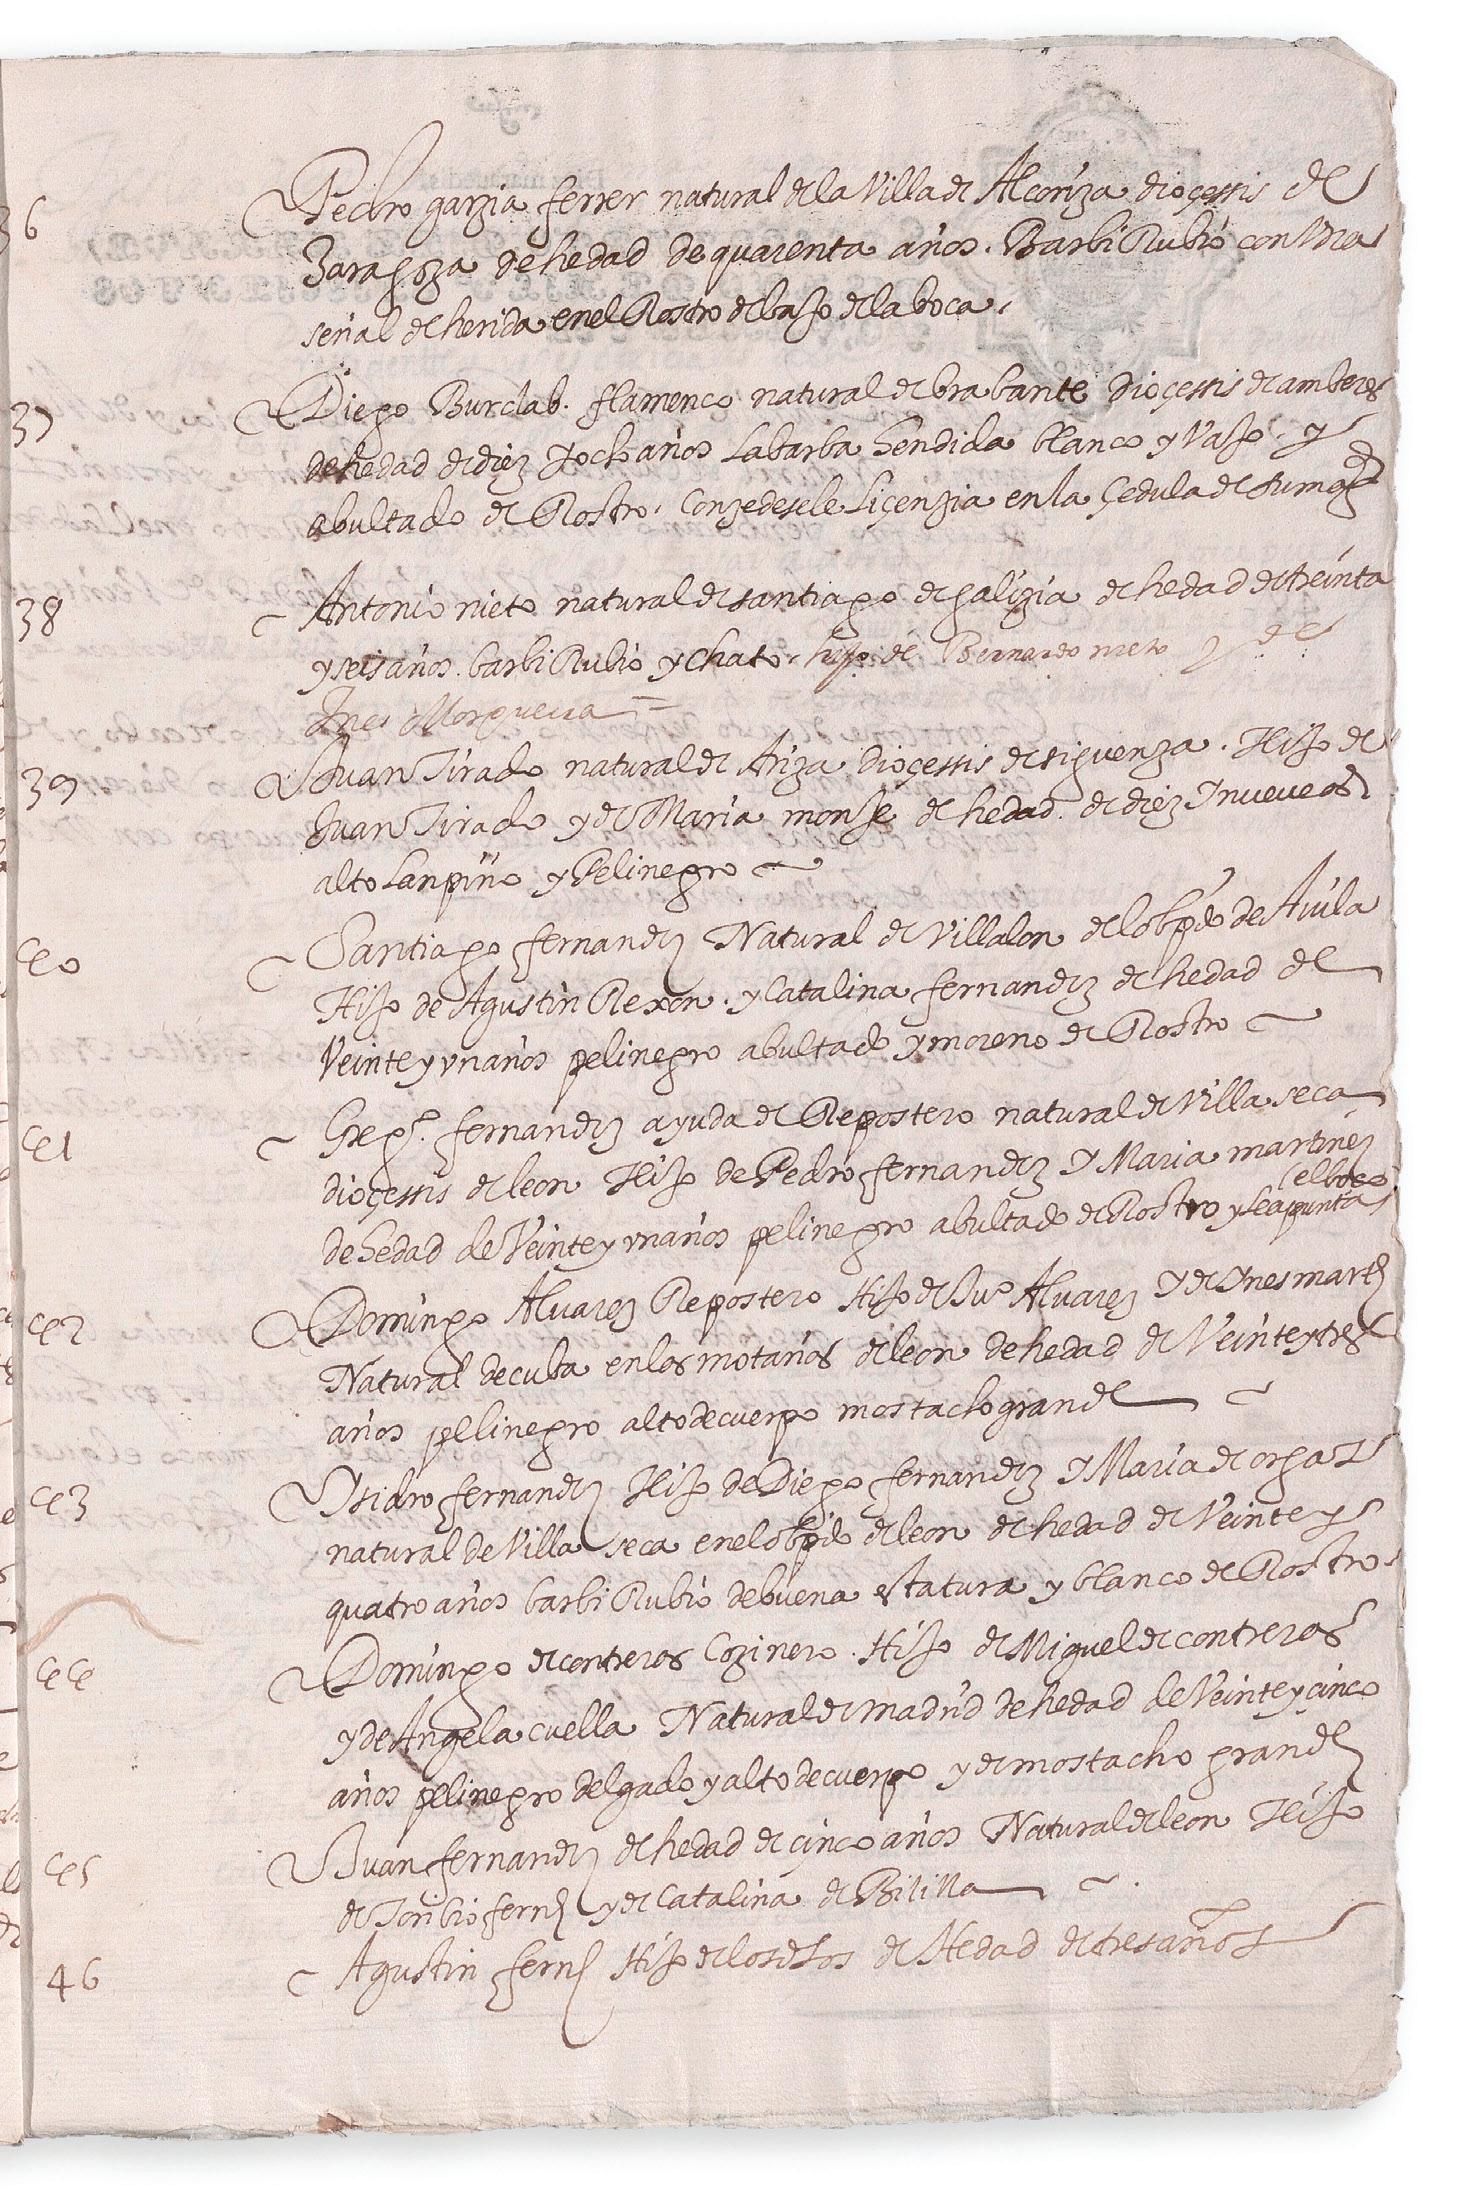 36 Pedro garzia ferrer natural de la Villa de Alcoriza dioçessis de
Zaragoza de hedad de quarenta años. Barbi Rubio con Vna
señal de herida en el Rostro debajo de la boca.
37 Diego Burclab. flamenco natural de brabante dioçessis de amberes
de hedad de diez y ocho años La barba hendida blanco y Vajo. y
abultado de Rostro. Conzedesele Liçenzia en la Çedula de su magd
38 Antonio nieto natural de santiago de galizia de hedad de treinta
y seis años. barbi Rubio y chato. hijo de Bernardo nieto y de
Ines Morgueira
39 Juan Tirado natural de Ariza dioçessis de siguenza. Hijo de
Juan Tirado y de Maria monje de hedad. de diez y nueve as
alto Lanpiño y Pelinegro
40 Santiago fernandez Natural de Villalon del obpdo de Auila
Hijo de Agustin Rexon. y Catalina fernandez de hedad de
Veinte y vn años pelinegro abultado y moreno de Rostro
41 Gregº. fernandez ayuda de Repostero natural de Villa seca
dioçessis de leon Hijo de Pedro fernandez y Maria martinez
el boço
de hedad de Veinte y vn años pelinegro abultado de Rostro y le apunta
42 Domingo Aluarez Repostero Hijo de Juº Aluarez y de Ynes martz
Natural de cuba en los motañas de leon de hedad de Veinte y tres
años pelinegro alto de cuerpo mostacho grande
43 Ysidro fernandez Hijo de Diego fernandez y Maria de orgas
natural de Villa seca en el obpdo de leon de hedad de Veinte y
quatro años barbi Rubio de buena estatura y blanco de Rostro.
44 Domingo de contreras Cozinero. Hijo de Miguel de contreras
y de Angela cuella Natural de madrid de hedad de Veinte y cinco
años pelinegro delgado y alto de cuerpo y de mostacho grande
45 Juan fernandez de hedad de cinco años Natural de leon Hijo
de Toribio fernz y de Catalina de Bililla
46 Agustin fernz Hijo de los dhos de Hedad de tres años